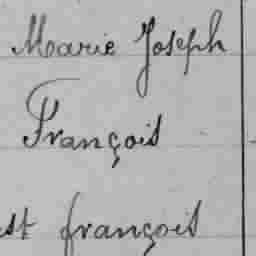 Marie Joseph
François
st françois